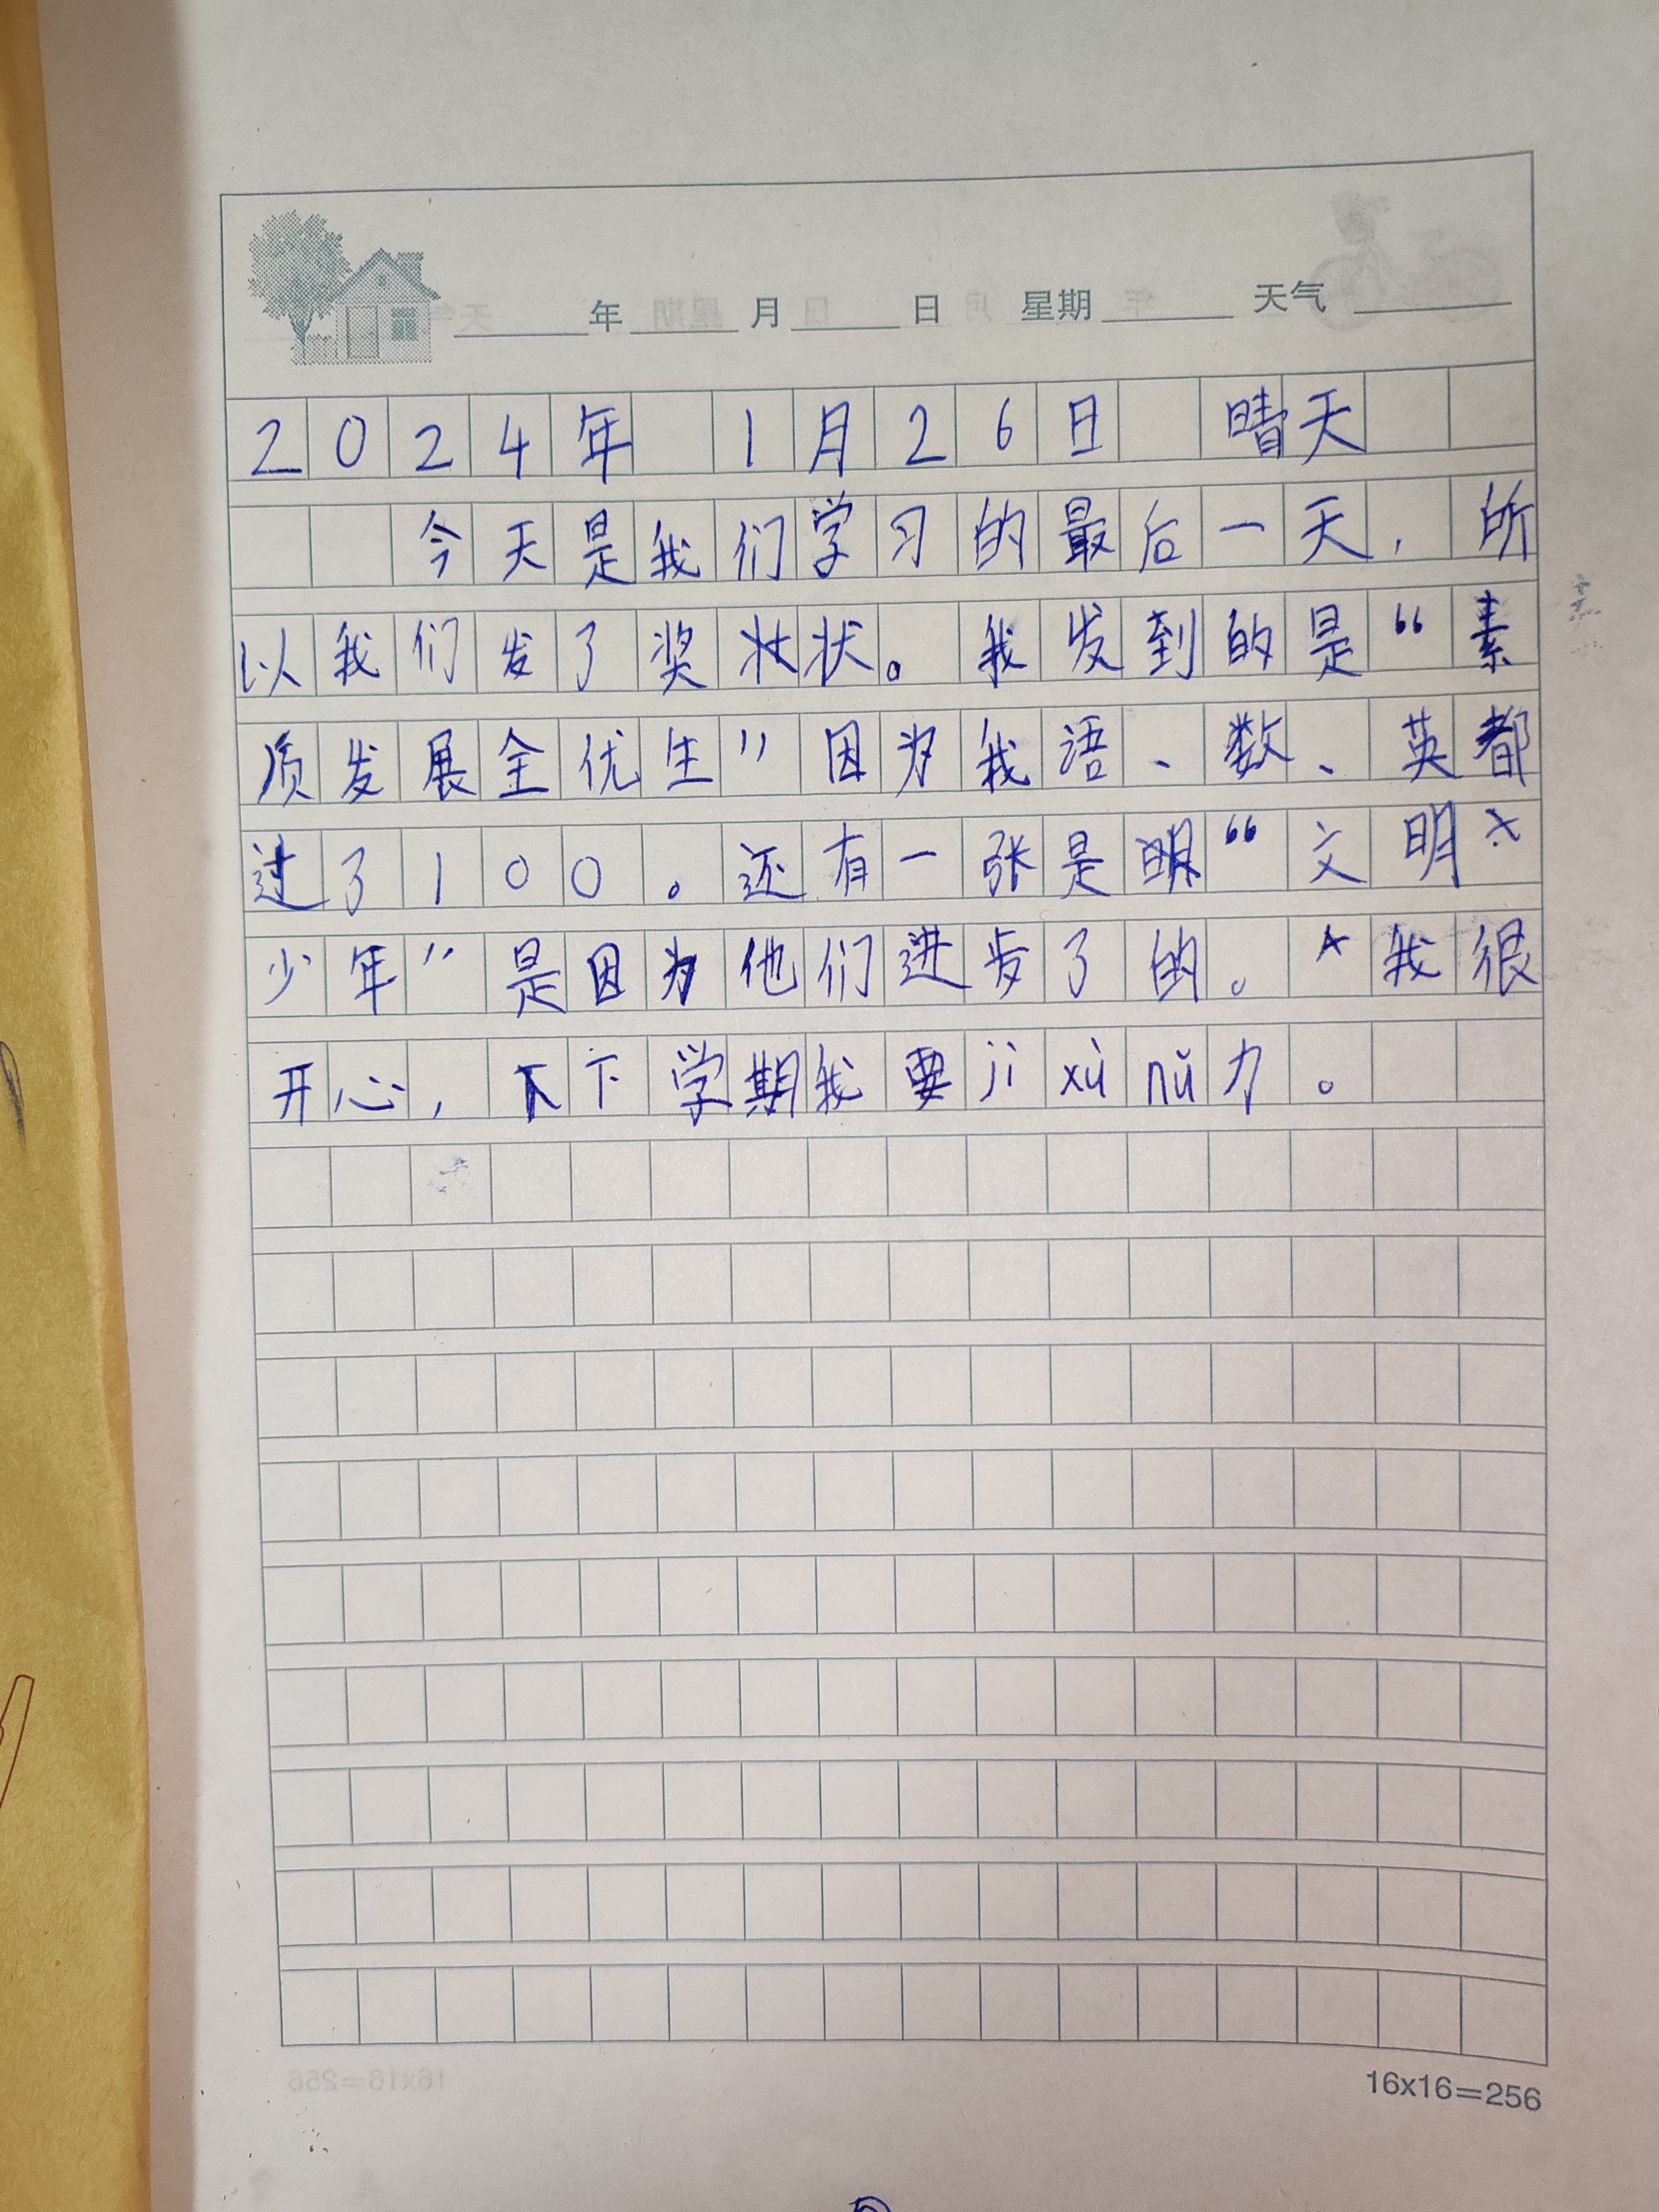 年 月 日 星期 天气
2024年 1月26日 晴天
今天是我们学习的最后一天，所
以我们发了奖状。我发到的是“素
质发展全优生”因为我语、数、英都
过了100。还有一张是“文明
少年”是因为他们进步了的。我很
开心，下学期我要jì xù nǔ力。
16x16=256